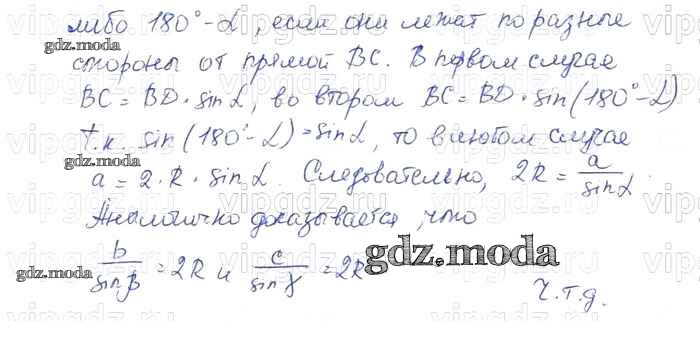 либо 180° - α, если они лежат по разные
стороны от прямой BC. В первом случае
BC = BD · sin α, во втором BC = BD · sin (180° - α)
т.к. sin (180° - α) = sin α, то в любом случае
a = 2 · R · sin α. Следовательно, 2R = a / sin α.
Аналогично доказывается, что
b / sin β = 2R и c / sin γ = 2R
ч.т.д.
gdz.moda
gdz.moda
gdz.moda
gdz.moda
gdz.moda